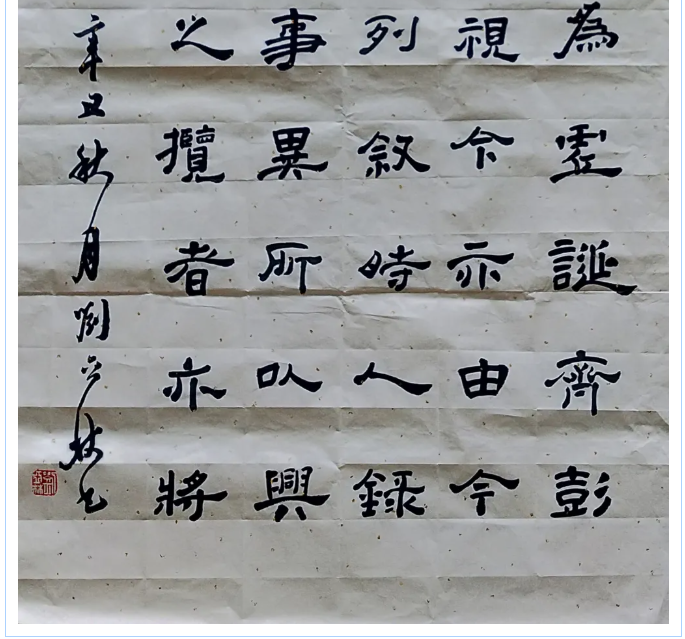 為虛誕齊彭
視今亦由今
列敘時人錄
事異所以興
之攬者亦將
辛丑秋月劉林書